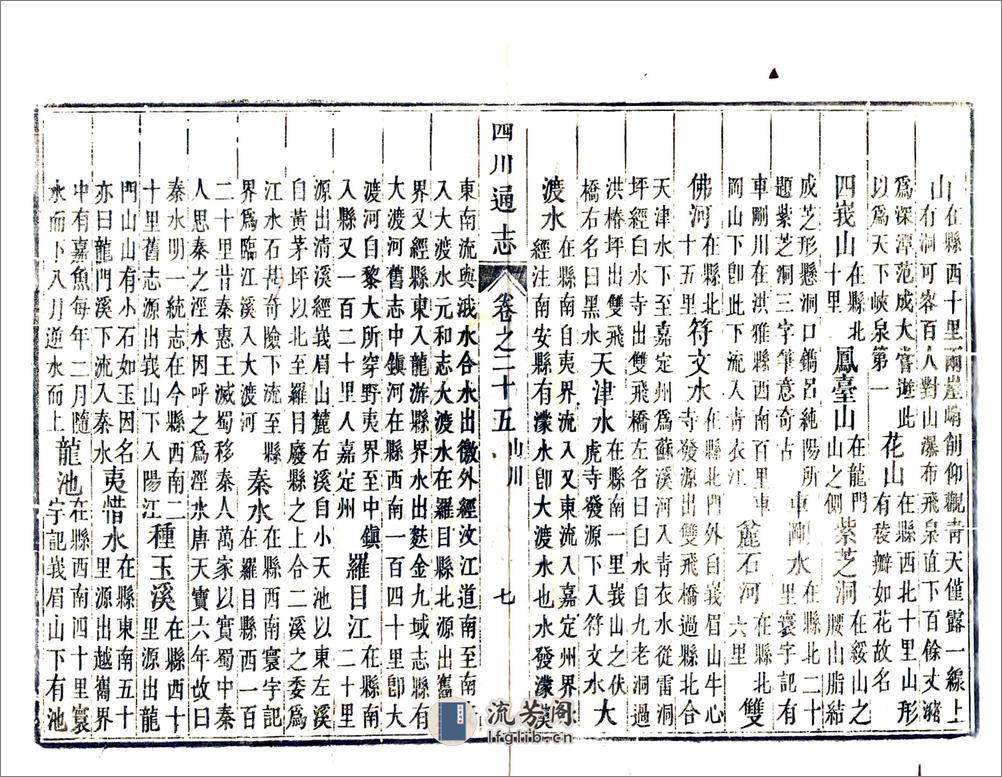 山在縣西十里兩崖峭削仰觀青天僅露一線上
有洞可容百人對山瀑布飛泉直下百餘丈潴
爲深潭范成大嘗遊此
以爲天下峽泉第一
花山在縣西北十里山形
有稜瓣如花故名
四峩山在縣北
鳳臺山在龍門
山之側
紫芝洞在綏山之
腰山脂結
成芝形縣洞口鐫呂純陽所
題紫芝洞三字筆意奇古
車剛水在縣北二十
里寰宇記有
車剛川在洪雅縣西南百里車
岡山下卽此下流入靑衣江
麄石河在縣北
六里
雙
佛河在縣北
十五里
符文水在縣北門外自峩眉山牛心
寺發源出雙飛橋過縣北合
天津水下至嘉定州爲蘇溪河入青衣水從雷
坪經白水寺出雙飛橋左名曰白水自九老洞過
洪椿坪出雙飛
橋右名曰黑水
天津水在縣南一里峩山之伏
虎寺發源下入符文水
大
渡水在縣南自夷界流入又東流入嘉定州界水
經注南安縣有濛水卽大渡水也水發濛溪
四川通志
卷之二十五
山川
七
東南流與涐水合水出徼外經汶江道南至南
入大渡水元和志大渡水在羅目縣北源出巂
界又經縣東入龍游縣界水出麩金九域志有
大渡河舊志中鎮河在縣西南一百四十里卽大
渡河自黎大所穿野夷界至中鎮
入縣又一百二十里人嘉定州
羅目江在縣南
四十里
源出清溪經峩眉山麓右自小天池以東左溪
自黃茅坪以北至羅目廢縣之上合二溪之委爲
江水石甚奇險下流至縣
界爲臨江溪入大渡河
秦水在縣西南寰宇記
在羅目縣西一百
二十里昔秦惠王滅蜀移秦人萬家以實蜀中秦
人思秦之涇水因呼之爲涇水唐天寶六年故曰
秦水明一統志在今縣西南二
十里舊志源出峩山下入陽江
種玉溪在縣西十
里源出龍
門山山有小石如玉因名
亦曰龍門溪下流入秦水
夷惜水在縣東南五十
里源出越巂界
中有嘉魚每年二月隨
水而下八月逆水而上
龍池在縣西南四十里寰
宇記峩眉山下有池
流芳阁
lfglib.cn